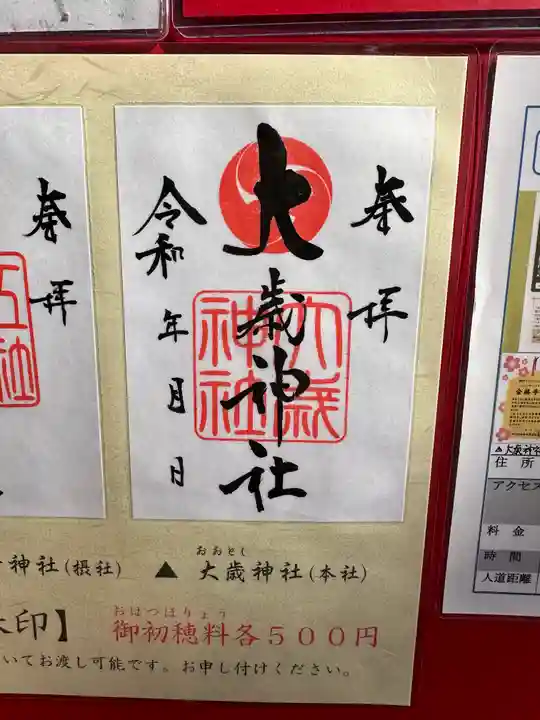 奉拝
大歳神社
令和 年 月 日
大歳
神社
奉拝
神社(摂社)
おおとし
▲ 大歳神社(本社)
印】
おはつほりょう
御初穂料各500円
いてお渡し可能です。お申し付けください。
▲大歳神社
住所
アクセス
料金
時間
人道距離